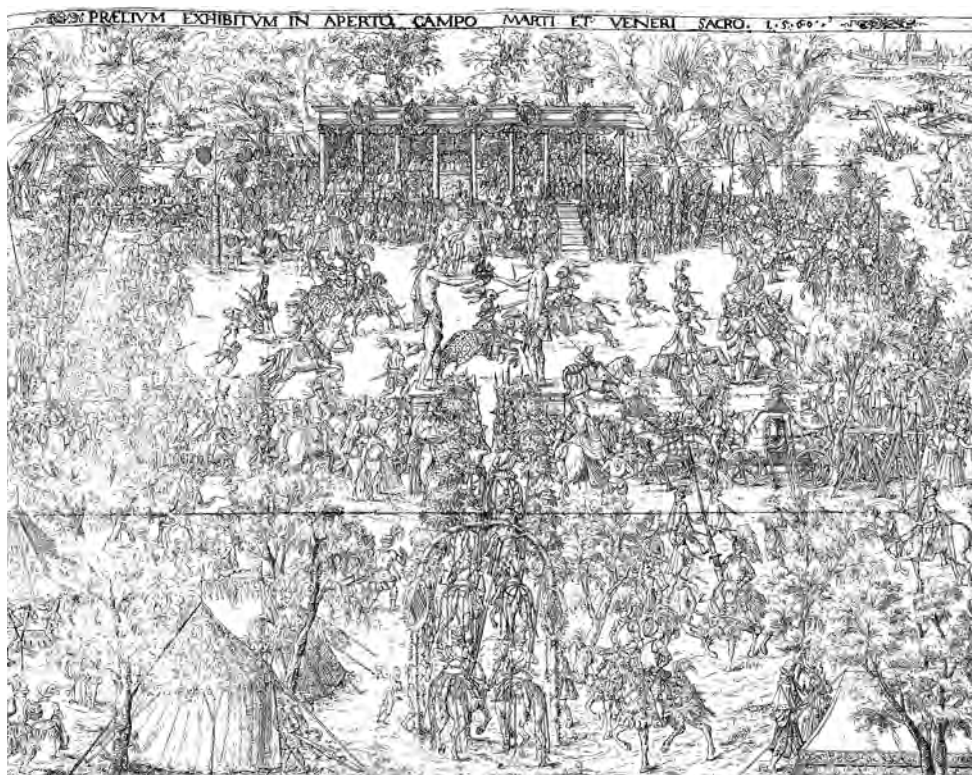 PRÆLIVM EXHIBITVM IN APERTO CAMPO MARTI ET VENERI SACRO. 1.5.60.